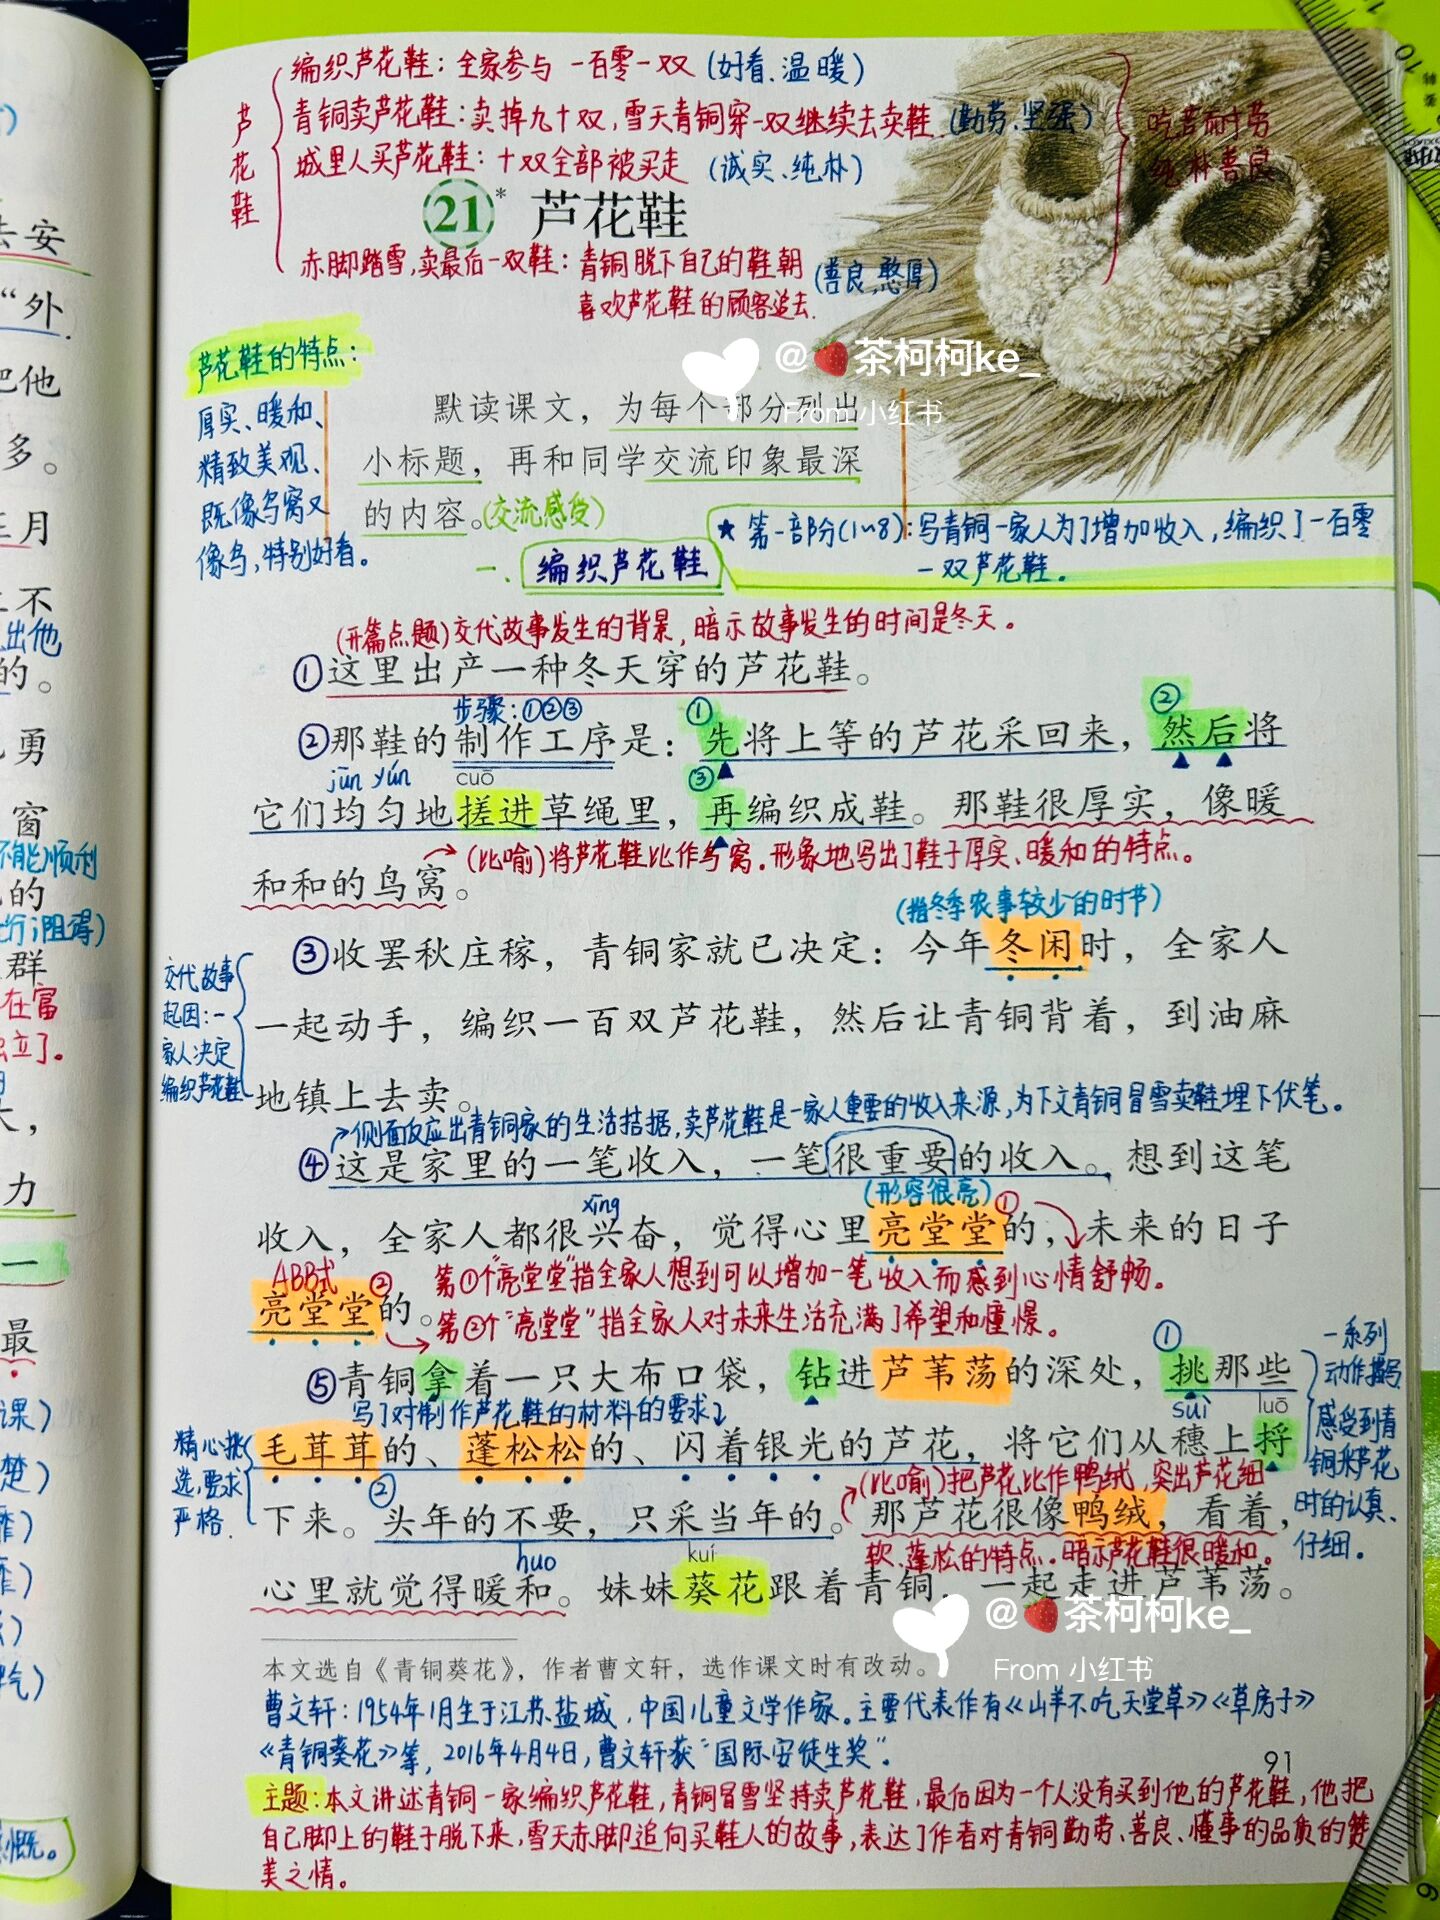 编织芦花鞋：全家参与 一百零一双（好看、温暖）
芦花鞋
青铜卖芦花鞋：卖掉九十双，雪天青铜穿一双继续去卖鞋（勤劳、坚强）
吃苦耐劳
纯朴善良
城里人买芦花鞋：十双全部被买走（诚实、纯朴）
21* 芦花鞋
赤脚踏雪，卖最后一双鞋：青铜脱下自己的鞋朝（善良、憨厚）
喜欢芦花鞋的顾客追去.
芦花鞋的特点：
厚实、暖和、
精致美观、
既像鸟窝又
像鸟，特别好看。
@🍓茶柯柯ke_
From 小红书
默读课文，为每个部分列出
小标题，再和同学交流印象最深
的内容。（交流感受）
★第一部分(1~8)：写青铜一家人为了增加收入，编织了一百零
一双芦花鞋.
一.编织芦花鞋
（开篇点题）交代故事发生的背景，暗示故事发生的时间是冬天。
①这里出产一种冬天穿的芦花鞋。
步骤：①②③
① ②
②那鞋的制作工序是：先将上等的芦花采回来，然后将
jūn yún cuō ③
它们均匀地搓进草绳里，再编织成鞋。那鞋很厚实，像暖
（比喻）将芦花鞋比作鸟窝.形象地写出了鞋子厚实、暖和的特点。
和和的鸟窝。
（指冬季农事较少的时节）
③收罢秋庄稼，青铜家就已决定：今年冬闲时，全家人
交代故事
起因：一
家人决定
编织芦花鞋
一起动手，编织一百双芦花鞋，然后让青铜背着，到油麻
地镇上去卖。
侧面反应出青铜家的生活拮据，卖芦花鞋是一家人重要的收入来源，为下文青铜冒雪卖鞋埋下伏笔。
④这是家里的一笔收入，一笔很重要的收入。想到这笔
xīng （形容很亮）①
收入，全家人都很兴奋，觉得心里亮堂堂的，未来的日子
ABB式 ② 第①个“亮堂堂”指全家人想到可以增加一笔收入而感到心情舒畅。
亮堂堂的。
第②个“亮堂堂”指全家人对未来生活充满了希望和憧憬。
①
⑤青铜拿着一只大布口袋，钻进芦苇荡的深处，挑那些
一系列
动作描写
感受到青
铜采芦花
时的认真、
仔细.
写了对制作芦花鞋的材料的要求
suì luō
精心挑
选，要求
严格.
毛茸茸的、蓬松松的、闪着银光的芦花，将它们从穗上捋
② （比喻）把芦花比作鸭绒，突出芦花细
下来。头年的不要，只采当年的。那芦花很像鸭绒，看着，
软、蓬松的特点.暗示芦花鞋很暖和。
huo kuí
心里就觉得暖和。妹妹葵花跟着青铜，一起走进芦苇荡。
@🍓茶柯柯ke_
From 小红书
本文选自《青铜葵花》，作者曹文轩，选作课文时有改动。
曹文轩：1954年1月生于江苏盐城，中国儿童文学作家。主要代表作有《山羊不吃天堂草》《草房子》
《青铜葵花》等，2016年4月4日，曹文轩获“国际安徒生奖”.
91
主题：本文讲述青铜一家编织芦花鞋，青铜冒雪坚持卖芦花鞋，最后因为一个人没有买到他的芦花鞋，他把
自己脚上的鞋子脱下来，雪天赤脚追向买鞋人的故事，表达了作者对青铜勤劳、善良、懂事的品质的赞
美之情。